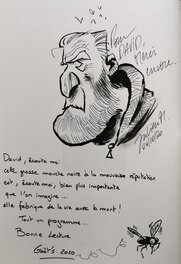 Pour
DAVID,
Merci
encore.
David, écoute moi
cette grosse mouche noire à la mauvaise réputation
est, écoute moi, bien plus importante
que l'on imagine...
elle fabrique de la vie avec la mort!
Tout un programme...
Bonne Lecture
2020